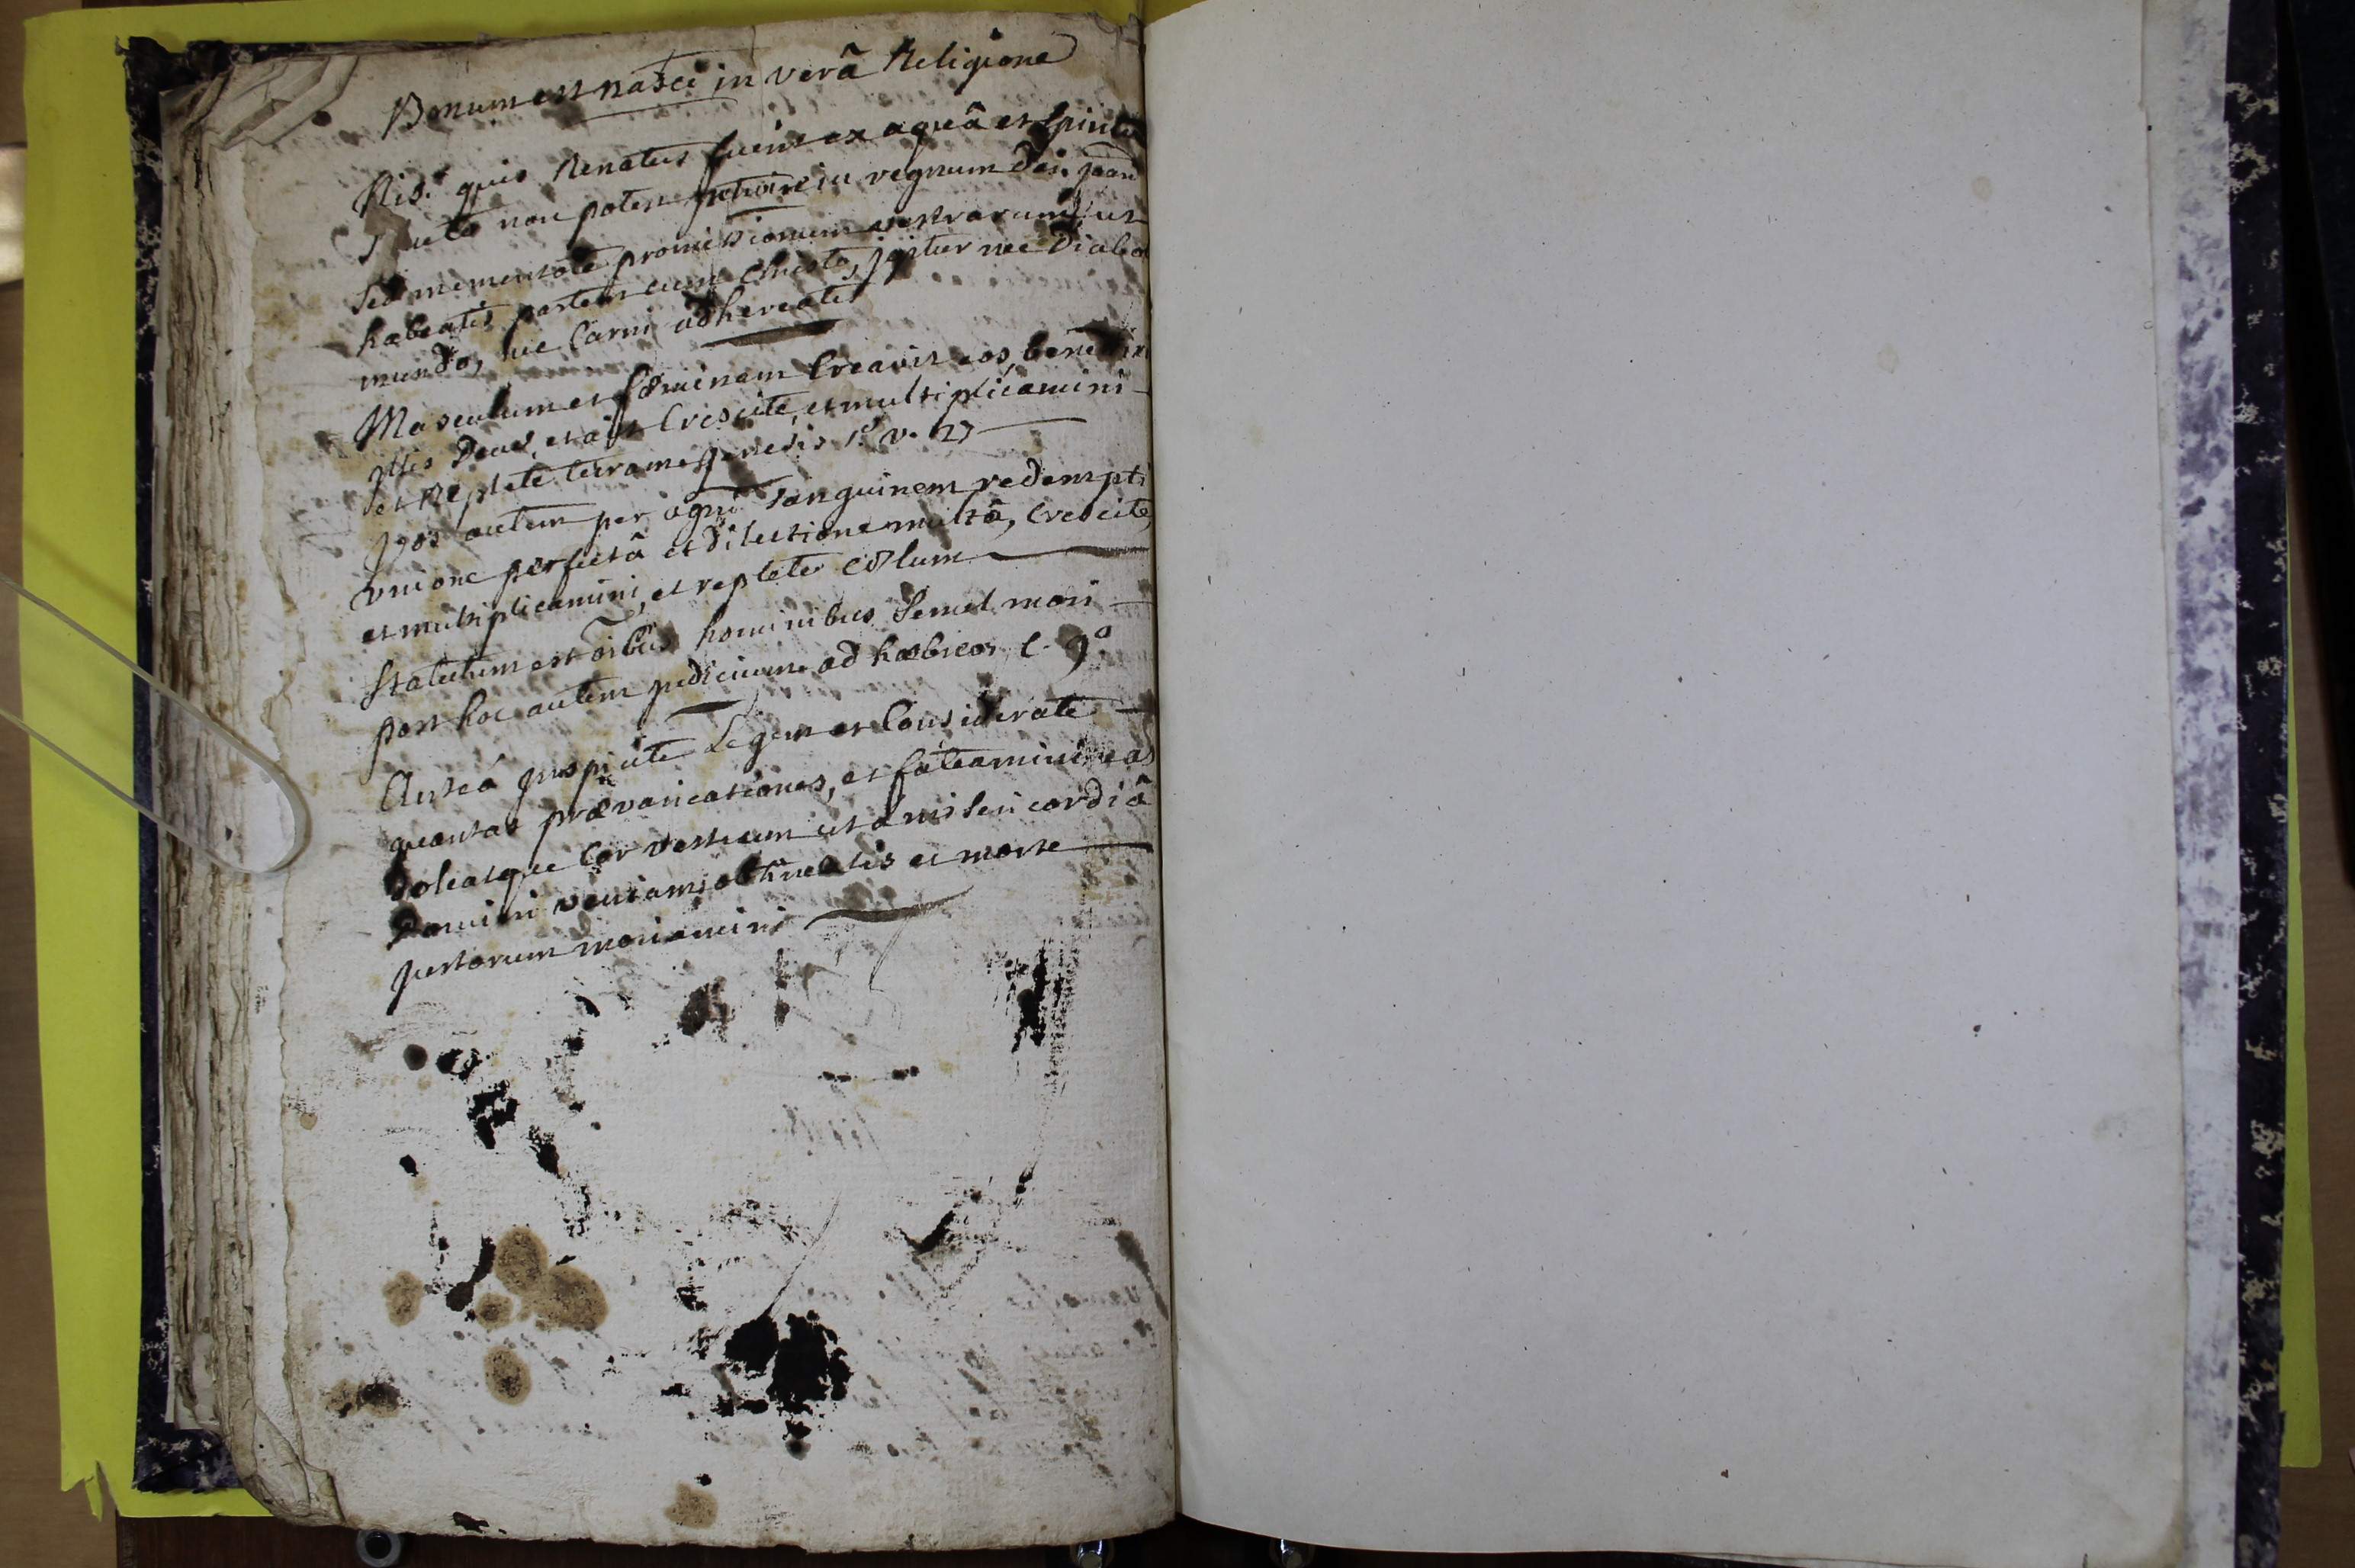 Bonum est nasci in verâ Religione
Nisi quis Renatus fuerit ex aquâ et Spiritu
non potest introire in regnum dei. joan
Sed mementote promissionum vestrarum, ut
habeatis partem cum Christo, jgitur nec Diabolo
mundo, nec Carni adhereatis
Masculum et fœminam Creavit eos, benedixit
jllis Deus, et ait Crescite, et multiplicamini
et Replete terram genesis 1.° v. 27
Vos autem per agni sanguinem redempti
vnione perfectâ et dilectione multâ, Crescite,
et multiplicamini, et replete cœlum
Statutum est oibus hominibus Semel mori
post hoc autem judicium ad hæbreos C. 9.°
Anteà juspicite Legem et Considerate
quantas prævaricationes, et fateamini eas
Doleatque Cor vestrum ut a misericordiâ
Domini veniam obtineatis et morte
justorum moriamini